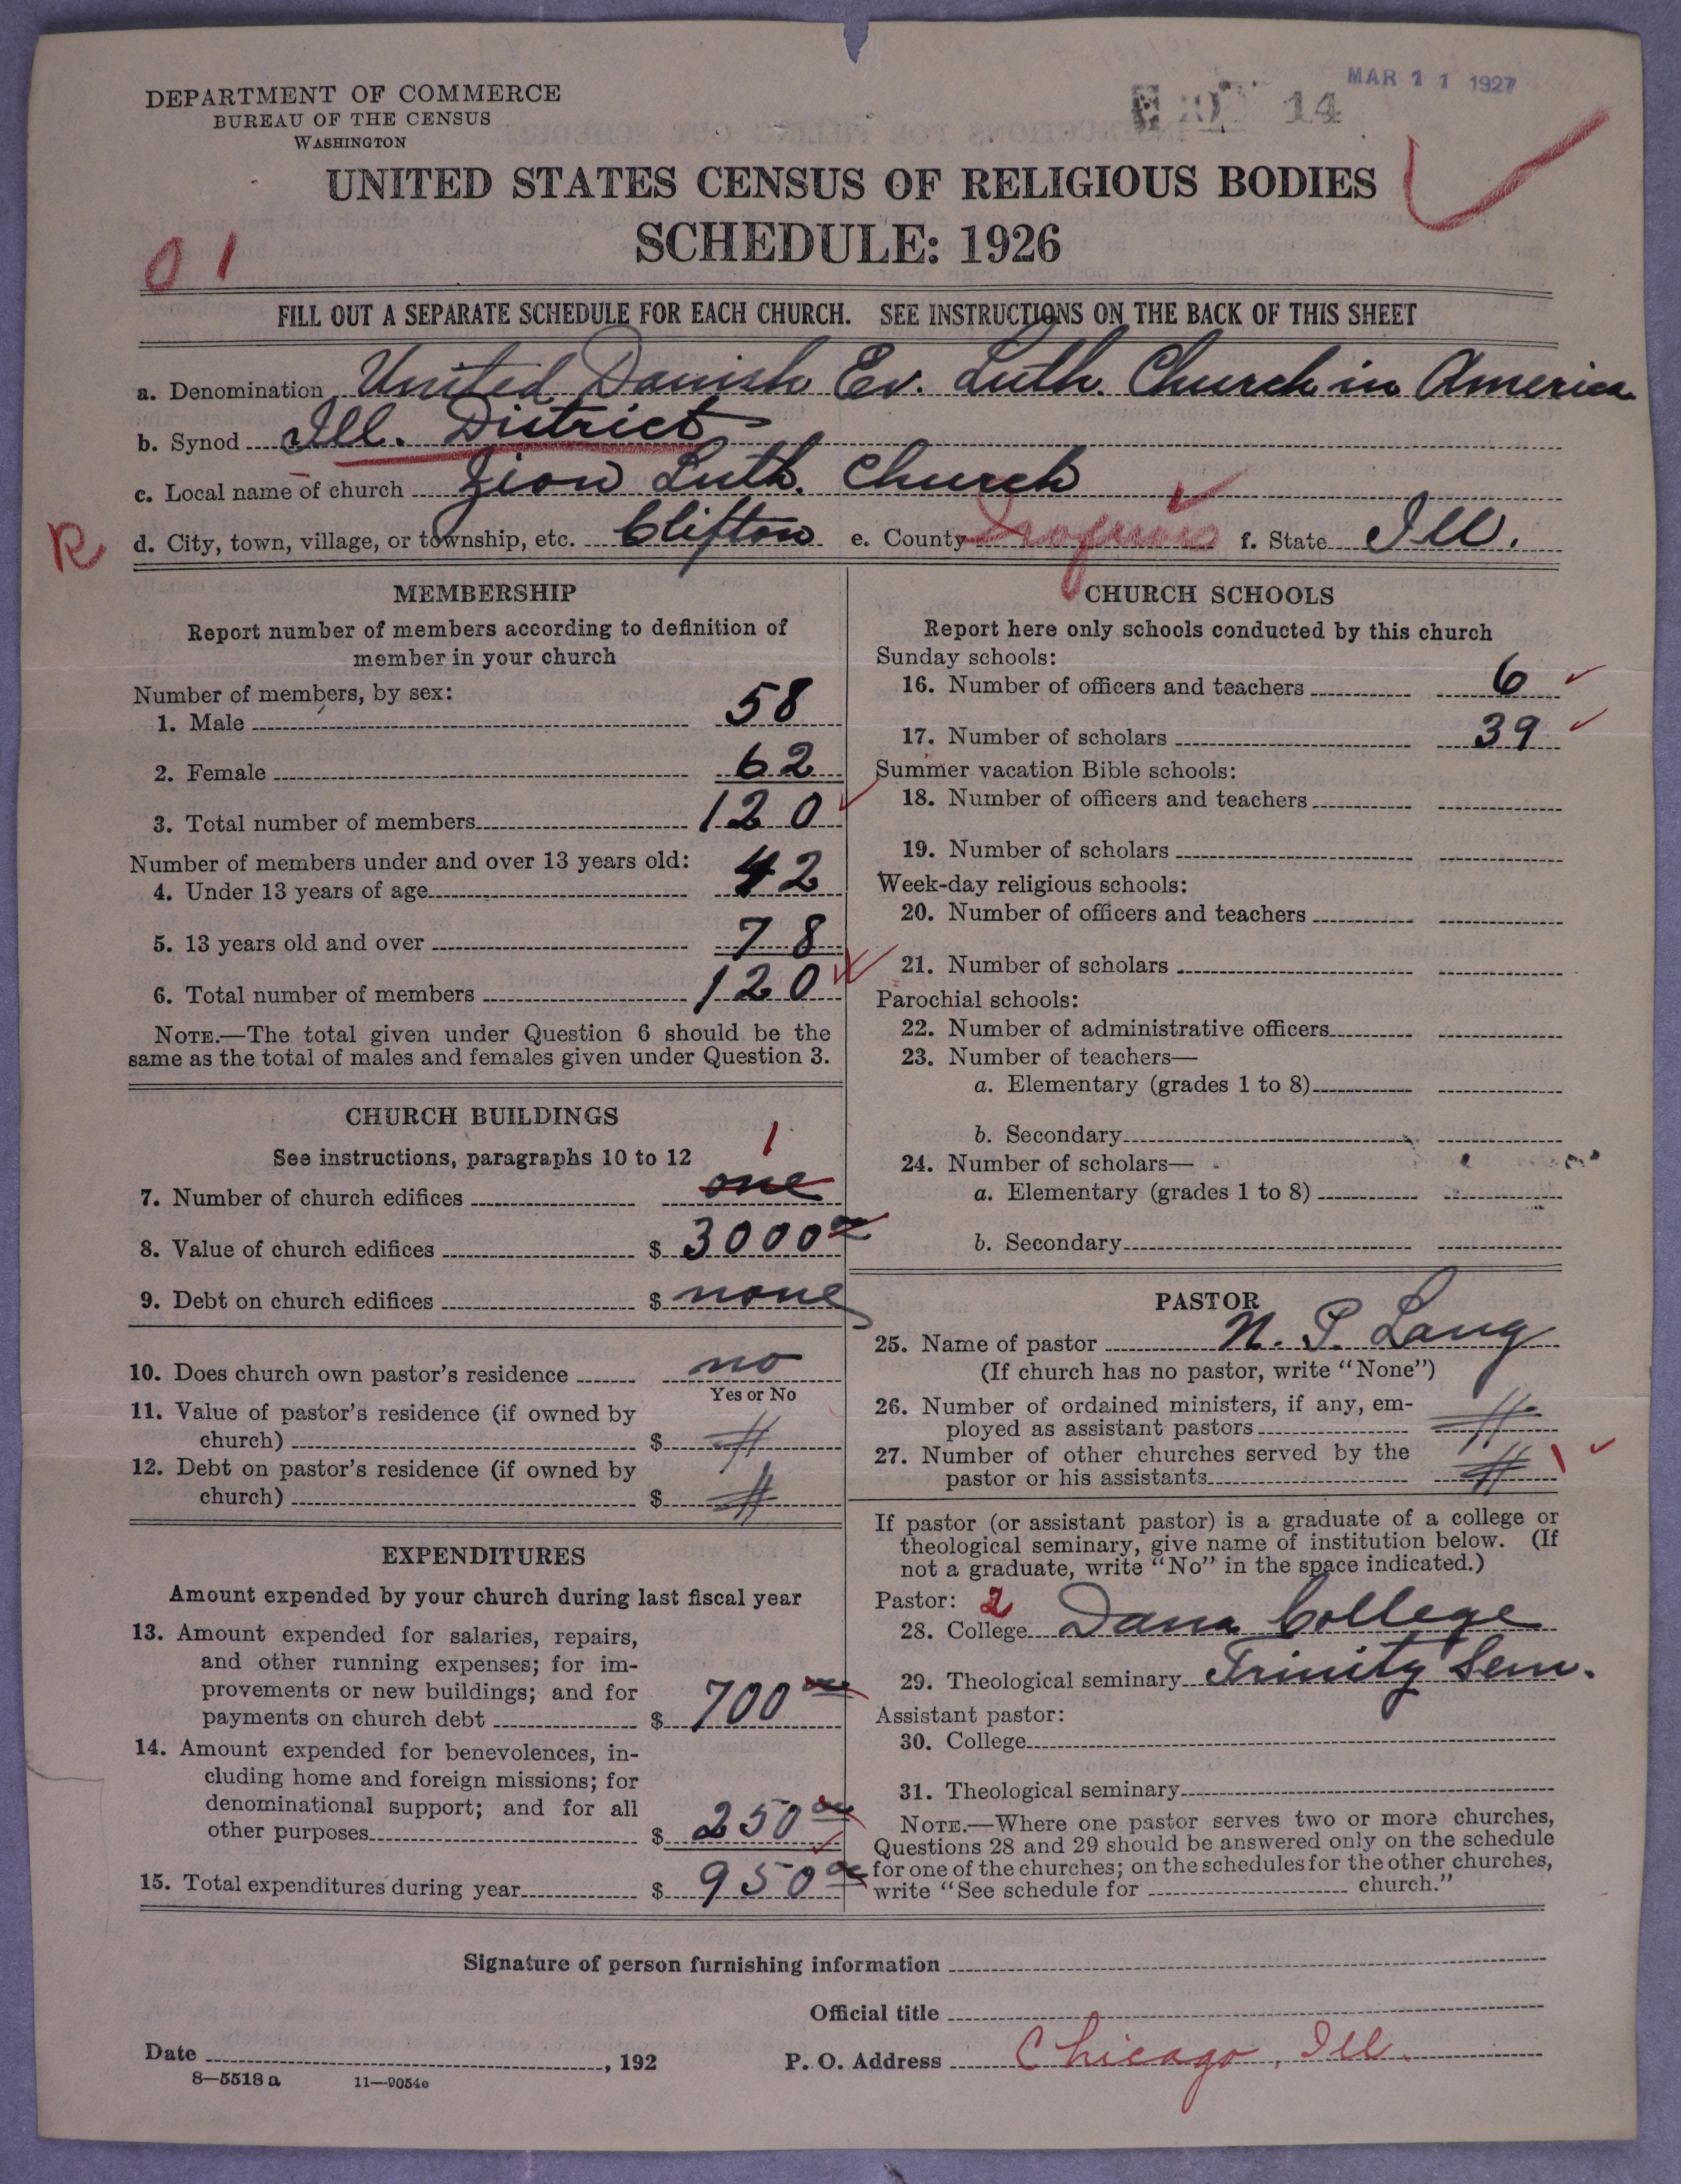 DEPARTMENT OF COMMERCE
BUREAU OF THE CENSUS
WASHINGTON
14
MAR 11 1927
UNITED STATES CENSUS OF RELIGIOUS BODIES
SCHEDULE: 1926
01
FILL OUT A SEPARATE SCHEDULE FOR EACH CHURCH. SEE INSTRUCTIONS ON THE BACK OF THIS SHEET
a. Denomination United Danish Ev. Luth. Church in America
b. Synod Ill. District
c. Local name of church Zion Luth. Church
R d. City, town, village, or township, etc. Clifton e. County Iroquois f. State Ill.
MEMBERSHIP
Report number of members according to definition of
member in your church
Number of members, by sex:
1. Male 58
2. Female 62
3. Total number of members 120
Number of members under and over 13 years old:
4. Under 13 years of age 42
5. 13 years old and over 78
6. Total number of members 120
NOTE.—The total given under Question 6 should be the
same as the total of males and females given under Question 3.
CHURCH BUILDINGS
See instructions, paragraphs 10 to 12
1
7. Number of church edifices one
8. Value of church edifices $ 3000 00
9. Debt on church edifices $ none
10. Does church own pastor's residence no
Yes or No
11. Value of pastor's residence (if owned by
church) $
12. Debt on pastor's residence (if owned by
church) $
EXPENDITURES
Amount expended by your church during last fiscal year
13. Amount expended for salaries, repairs,
and other running expenses; for im-
provements or new buildings; and for
payments on church debt $ 700 00
14. Amount expended for benevolences, in-
cluding home and foreign missions; for
denominational support; and for all
other purposes $ 250 00
15. Total expenditures during year $ 950 00
CHURCH SCHOOLS
Report here only schools conducted by this church
Sunday schools:
16. Number of officers and teachers 6
17. Number of scholars 39
Summer vacation Bible schools:
18. Number of officers and teachers
19. Number of scholars
Week-day religious schools:
20. Number of officers and teachers
21. Number of scholars
Parochial schools:
22. Number of administrative officers
23. Number of teachers—
a. Elementary (grades 1 to 8)
b. Secondary
24. Number of scholars—
a. Elementary (grades 1 to 8)
b. Secondary
PASTOR
25. Name of pastor N. P. Lang
(If church has no pastor, write "None")
26. Number of ordained ministers, if any, em-
ployed as assistant pastors
27. Number of other churches served by the
pastor or his assistants 1
If pastor (or assistant pastor) is a graduate of a college or
theological seminary, give name of institution below. (If
not a graduate, write "No" in the space indicated.)
Pastor: 2
28. College Dana College
29. Theological seminary Trinity Sem.
Assistant pastor:
30. College
31. Theological seminary
NOTE.—Where one pastor serves two or more churches,
Questions 28 and 29 should be answered only on the schedule
for one of the churches; on the schedules for the other churches,
write "See schedule for church."
Signature of person furnishing information
Official title
Date , 192
P. O. Address Chicago, Ill.
8—5518 a 11—9054c